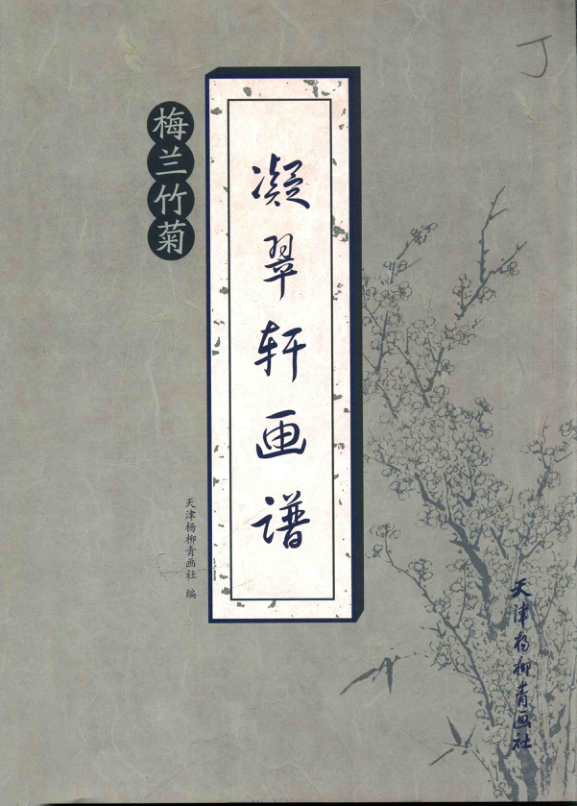 丁
凝翠轩画谱
梅兰竹菊
天津杨柳青画社 编
天津杨柳青画社